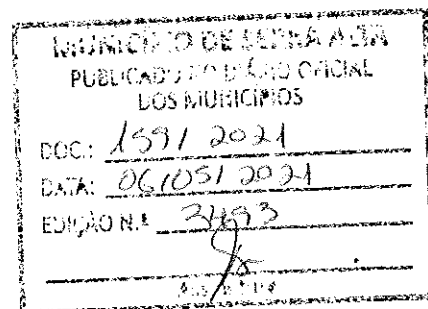 MUNICÍPIO DE SERRA ALTA
PUBLICADO NO DIÁRIO OFICIAL
DOS MUNICÍPIOS
DOC.: 159/2021
DATA: 06/05/2021
EDIÇÃO N.º 3493